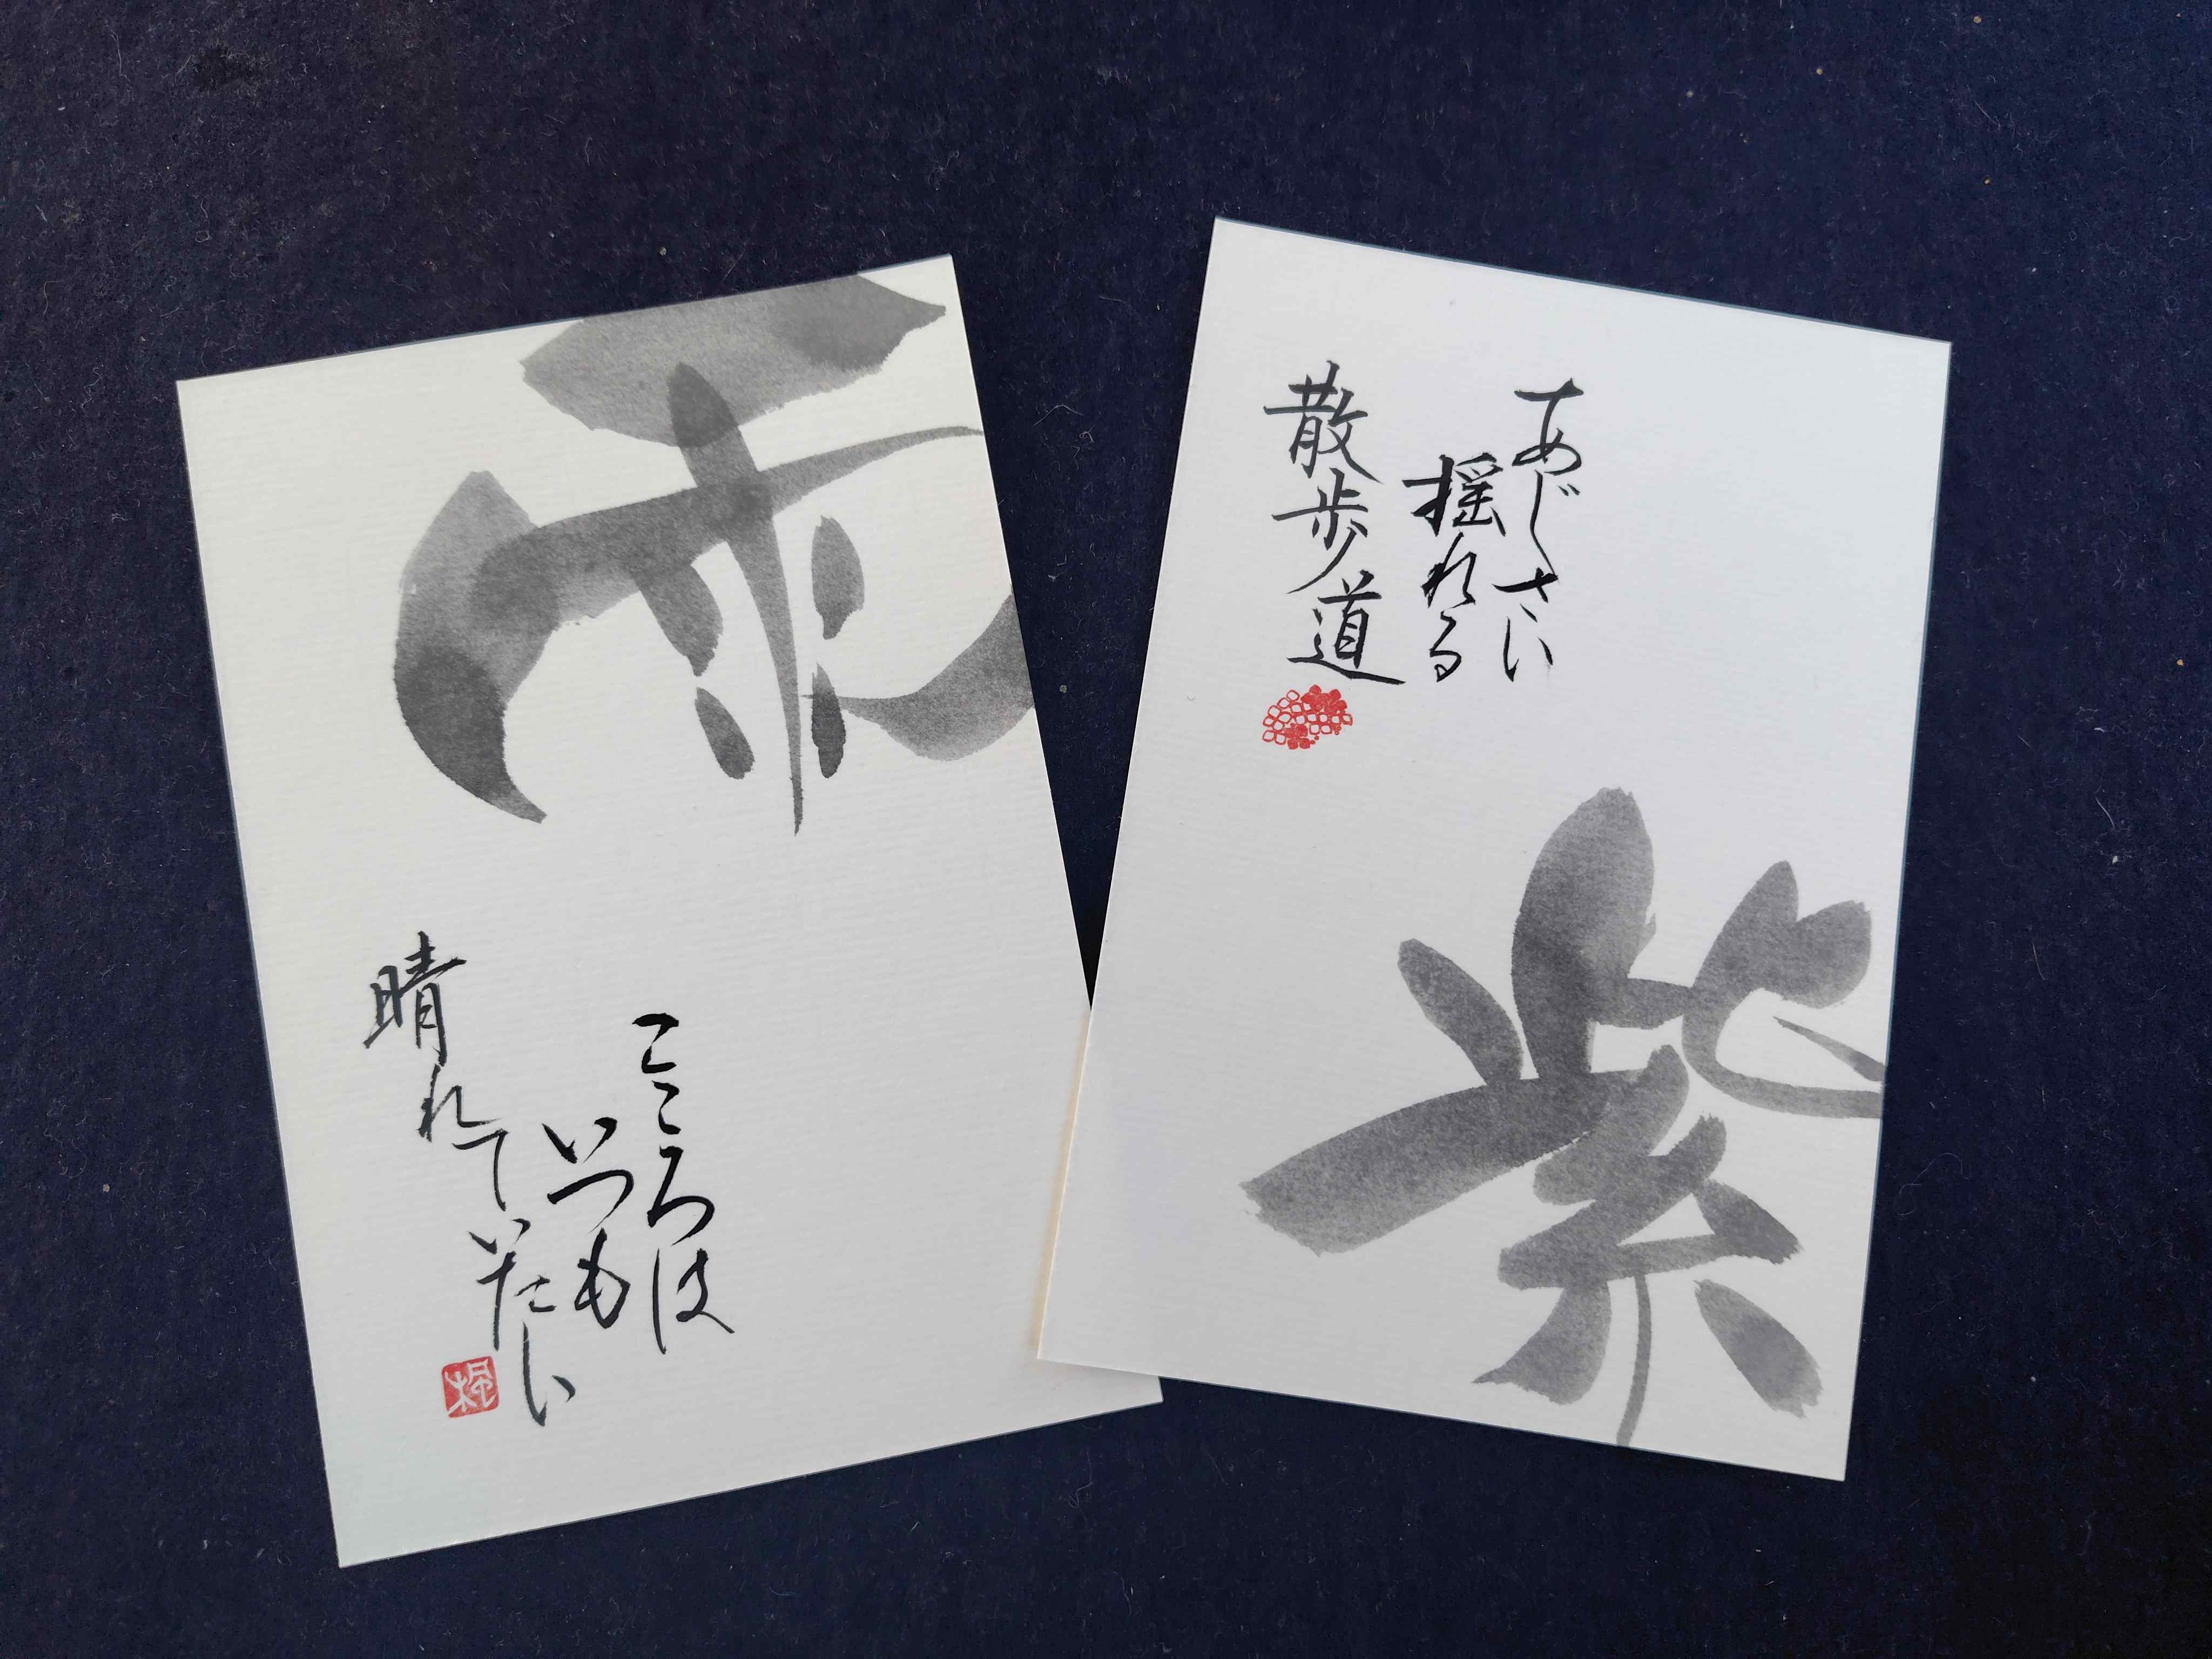 雨
こころは
いつも
晴れていたい
あじさい
揺れる
散歩道
紫